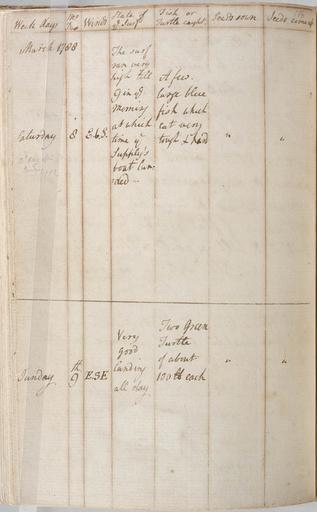 Week days
Winds
State of
ye Surf
Fish or
Turtle caught
Seeds sown
Seeds come up
March 1788
Saturday
8
E.b.S.
The surf
ran very
high till
9 in ye
morning
at which
time ye
Supply's
boat lan-
ded
A few
large blue
fish which
eat very
tough & hard
"
"
Sunday
th
9
ESE
Very
good
landing
all day
Two Green
Turtle
of about
100 lb each
"
"